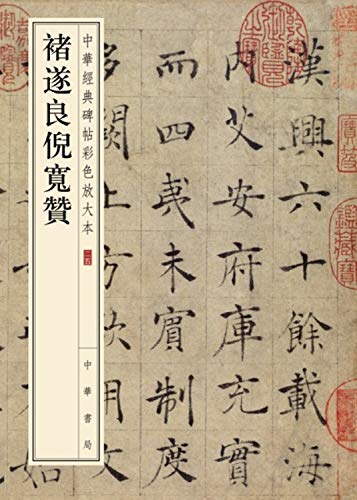 中華經典碑帖彩色放大本
二五
中華書局
褚遂良倪寬贊
漢興六十餘載海
內艾安府庫充實
而四夷未賓制度
多闕上方欲用文
始